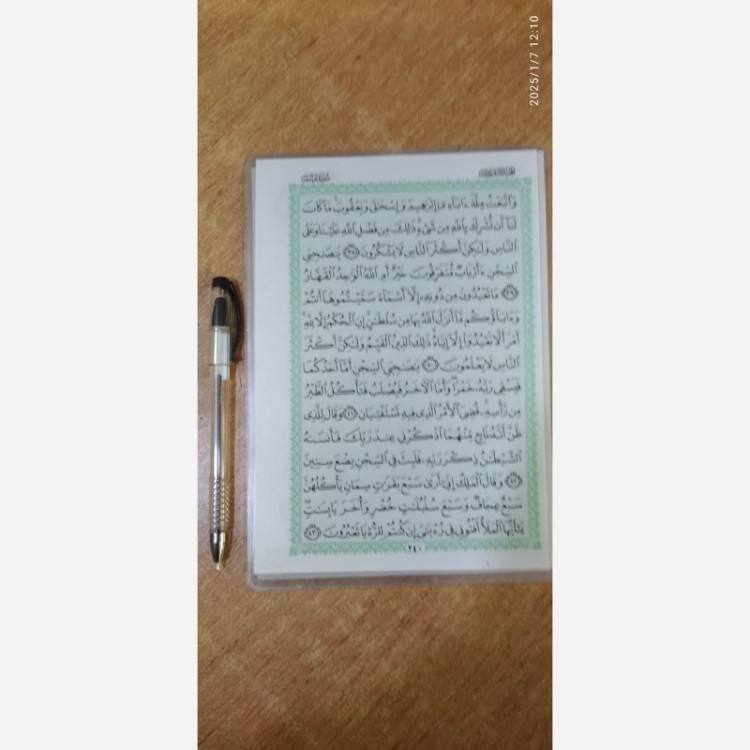 2025/1/7 12:10
سورة يوسف
الجزء الثاني عشر
وَاتَّبَعْتُ مِلَّةَ ءَابَآءِىٓ إِبْرَٰهِيمَ وَإِسْحَٰقَ وَيَعْقُوبَ مَا كَانَ
لَنَآ أَن نُّشْرِكَ بِٱللَّهِ مِن شَىْءٍ ذَٰلِكَ مِن فَضْلِ ٱللَّهِ عَلَيْنَا وَعَلَى
ٱلنَّاسِ وَلَٰكِنَّ أَكْثَرَ ٱلنَّاسِ لَا يَشْكُرُونَ ٣٨ يَٰصَٰحِبَىِ
ٱلسِّجْنِ ءَأَرْبَابٌ مُّتَفَرِّقُونَ خَيْرٌ أَمِ ٱللَّهُ ٱلْوَٰحِدُ ٱلْقَهَّارُ
٣٩ مَا تَعْبُدُونَ مِن دُونِهِۦٓ إِلَّآ أَسْمَآءً سَمَّيْتُمُوهَآ أَنتُمْ
وَءَابَآؤُكُم مَّآ أَنزَلَ ٱللَّهُ بِهَا مِن سُلْطَٰنٍ إِنِ ٱلْحُكْمُ إِلَّا لِلَّهِ
أَمَرَ أَلَّا تَعْبُدُوٓا۟ إِلَّآ إِيَّاهُ ذَٰلِكَ ٱلدِّينُ ٱلْقَيِّمُ وَلَٰكِنَّ أَكْثَرَ
ٱلنَّاسِ لَا يَعْلَمُونَ ٤٠ يَٰصَٰحِبَىِ ٱلسِّجْنِ أَمَّآ أَحَدُكُمَا
فَيَسْقِى رَبَّهُۥ خَمْرًا وَأَمَّا ٱلْءَاخَرُ فَيُصْلَبُ فَتَأْكُلُ ٱلطَّيْرُ
مِن رَّأْسِهِۦ قُضِىَ ٱلْأَمْرُ ٱلَّذِى فِيهِ تَسْتَفْتِيَانِ ٤١ وَقَالَ لِلَّذِى
ظَنَّ أَنَّهُۥ نَاجٍ مِّنْهُمَا ٱذْكُرْنِى عِندَ رَبِّكَ فَأَنسَىٰهُ
ٱلشَّيْطَٰنُ ذِكْرَ رَبِّهِۦ فَلَبِثَ فِى ٱلسِّجْنِ بِضْعَ سِنِينَ
٤٢ وَقَالَ ٱلْمَلِكُ إِنِّىٓ أَرَىٰ سَبْعَ بَقَرَٰتٍ سِمَانٍ يَأْكُلُهُنَّ
سَبْعٌ عِجَافٌ وَسَبْعَ سُنۢبُلَٰتٍ خُضْرٍ وَأُخَرَ يَابِسَٰتٍ
يَٰٓأَيُّهَا ٱلْمَلَأُ أَفْتُونِى فِى رُءْيَٰىَ إِن كُنتُمْ لِلرُّءْيَا تَعْبُرُونَ ٤٣
٢٤٠